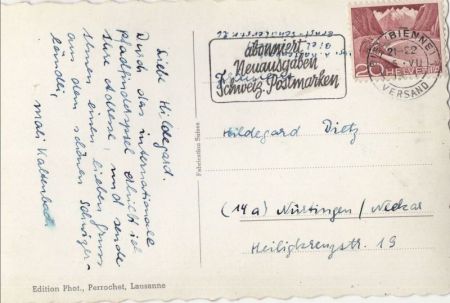 Liebe Hildegard.
Durch das internationale
Pfadfinderspiel erhielt ich
Ihre Adresse, und sende
Ihnen einen lieben Gruss
aus dem schönen Schweizer-
ländli,
Edition Phot., Perrochet, Lausanne
Fabrication Suisse
abonniert
Neuausgaben
Schweiz. Postmarken
(BIENNE)
21-22
VII
VERSAND
20 HELVETIA
Hildegard Dietz
(14a) Nürtingen / Neckar
Heiligkreuzstr. 19